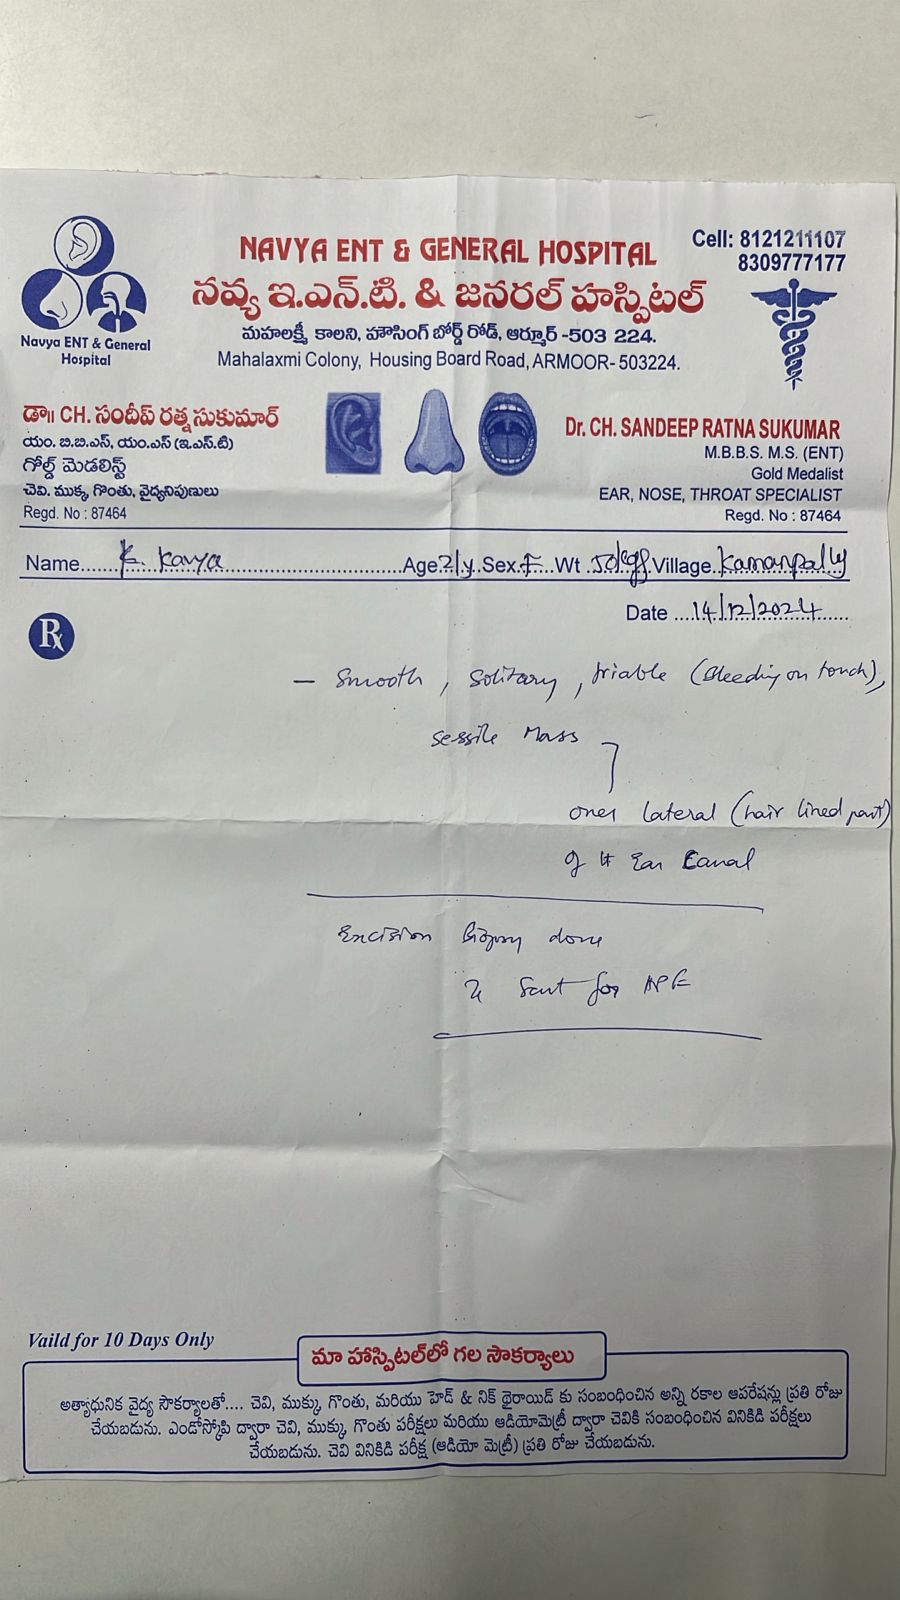 NAVYA ENT & GENERAL HOSPITAL
Cell: 8121211107
8309777177
నవ్య ఇ.ఎన్.టి. & జనరల్ హస్పిటల్
Navya ENT & General
Hospital
మహలక్ష్మీ కాలని, హౌసింగ్ బోర్డ్ రోడ్, ఆర్మూర్ -503 224.
Mahalaxmi Colony, Housing Board Road, ARMOOR- 503224.
డా॥ CH. సందీప్ రత్న సుకుమార్
యం. బి.బి.ఎస్, యం.ఎస్ (ఇ.ఎస్.టి)
గోల్డ్ మెడలిస్ట్
చెవి. ముక్కు గొంతు, వైద్యనిపుణులు
Regd. No : 87464
Dr. CH. SANDEEP RATNA SUKUMAR
M.B.B.S. M.S. (ENT)
Gold Medalist
EAR, NOSE, THROAT SPECIALIST
Regd. No : 87464
Name..... K. Kavya ..... Age 21y Sex F Wt 50kgs Village Kamanpally
Date 14/12/2024
Rx
– Smooth, Solitary, friable (Bleeding on touch),
sessile Mass
over lateral (hair lined part)
of Ear Canal
Excision Biopsy done
& Sent for HPE
Vaild for 10 Days Only
మా హాస్పిటల్‌లో గల సౌకర్యాలు
అత్యాధునిక వైద్య సౌకర్యాలతో.... చెవి, ముక్కు గొంతు, మరియు హెడ్ & నెక్ థైరాయిడ్ కు సంబంధించిన అన్ని రకాల ఆపరేషన్లు ప్రతి రోజు
చేయబడును. ఎండోస్కోపి ద్వారా చెవి, ముక్కు, గొంతు పరీక్షలు మరియు ఆడియోమెట్రీ ద్వారా చెవికి సంబంధించిన వినికిడి పరీక్షలు
చేయబడును. చెవి వినికిడి పరీక్ష (ఆడియో మెట్రీ) ప్రతి రోజు చేయబడును.